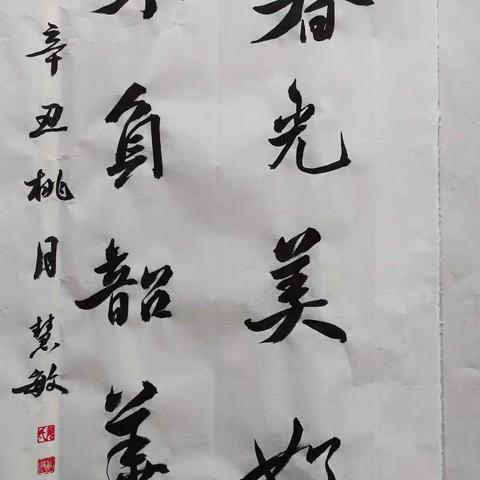 春光美
不負韶華
辛丑桃月慧敏